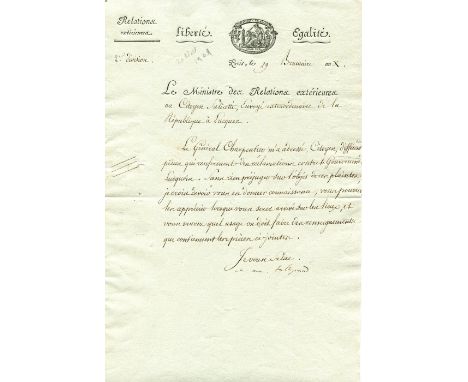 Relations
extérieures
Liberté
Egalité
2.e division.
Paris, le 19 Brumaire an X.
Le Ministre des Relations extérieures
au Citoyen Saliceti, Envoyé extraordinaire de la
République à Lucques.
Le Général Charpentier m'a adressé, Citoyen, différentes
pièces qui renferment des réclamations contre le Gouvernement
Ligurien. Sans rien préjuger sur l'objet de ces plaintes,
je crois devoir vous en donner connaissance, vous pourrez
les apprécier lorsque vous serez arrivé sur les lieux, et
vous verrez quel usage on doit faire des renseignements
que contiennent les pièces ci-jointes.
Je vous salue